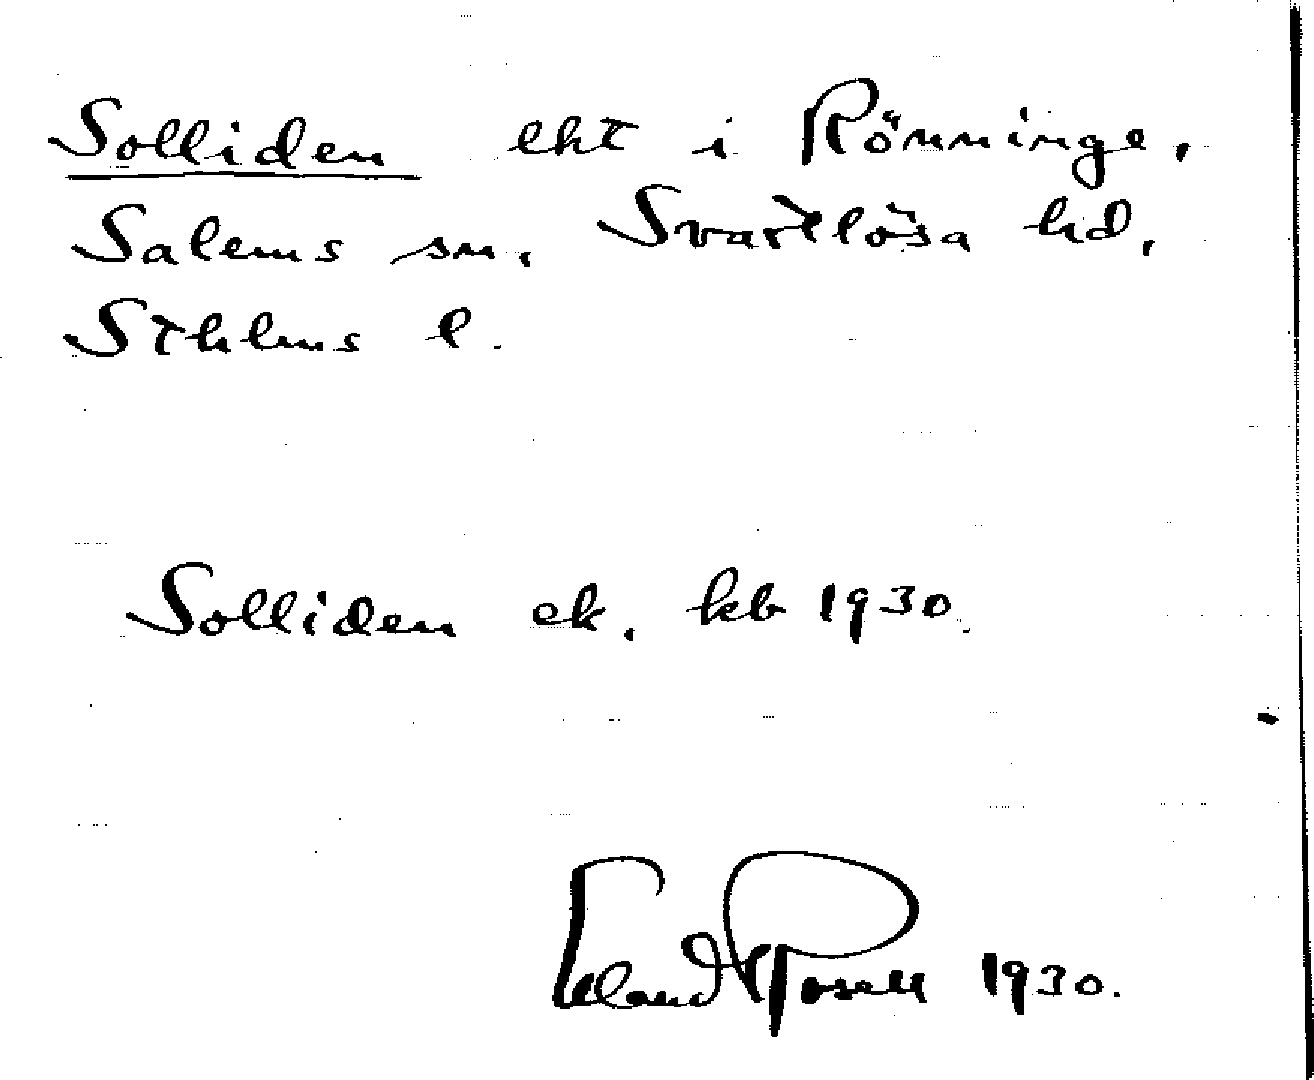 Solliden lht i Rönninge,
Salems sn, Svartlösa hd,
Sthlms l.
Solliden ek. kb 1930.
Erland Rosell 1930.